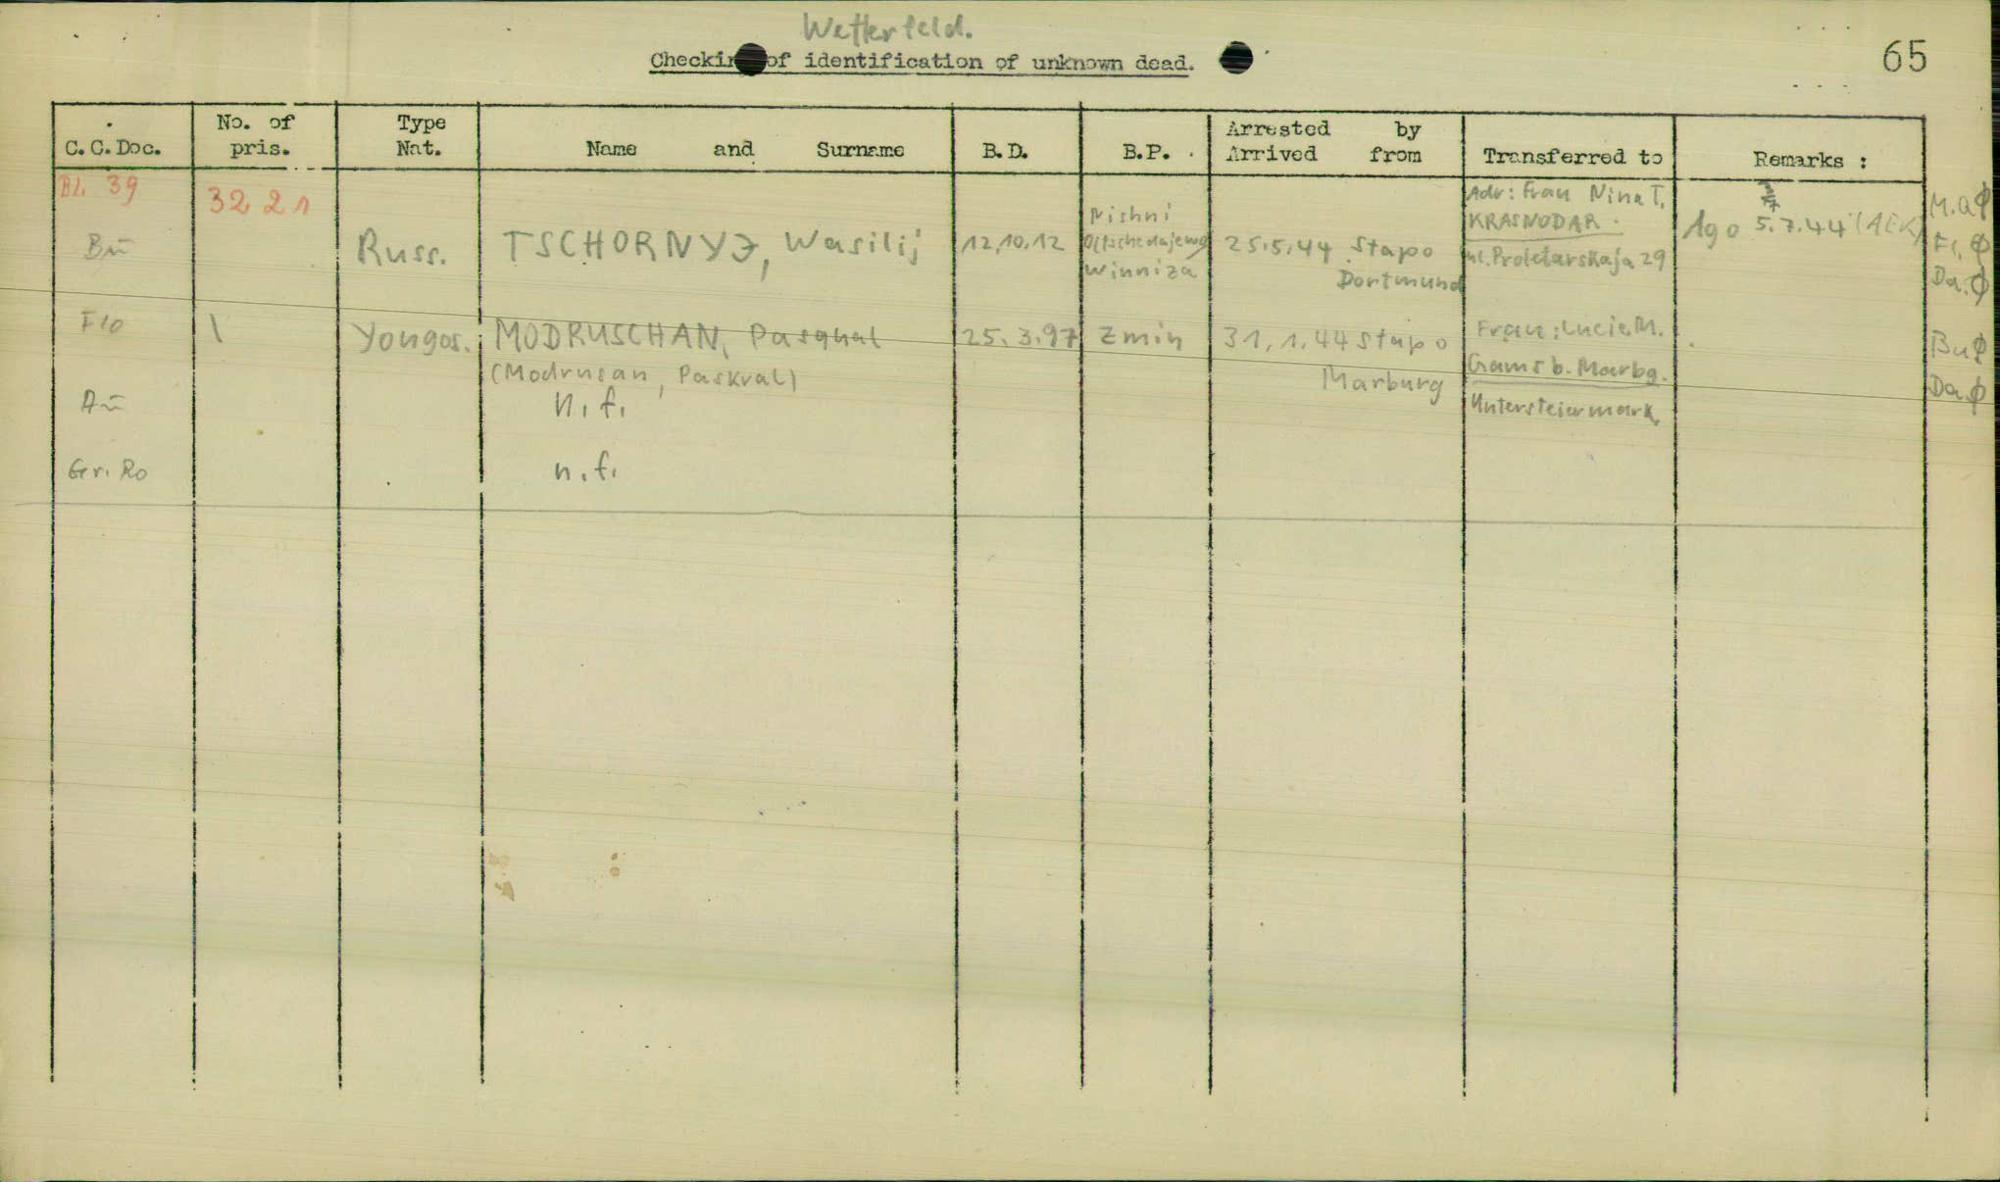 Wetterfeld.
Checking of identification of unknown dead.
65
C.C.Doc.
No. of pris.
Type Nat.
Name and Surname
B.D.
B.P.
Arrested by
Arrived from
Transferred to
Remarks :
Bl. 39
3221
Bū
Russ.
TSCHORNYJ, Wasilij
12.10.12
Nishni
Winniza
25.5.44 Stapo
Dortmund
Adr: Frau Nina T.
KRASNODAR.
ul. Proletarskaja 29
190 5.7.44
M.a φ
Fl. φ
Da. φ
Flo
\
Yougos.
MODRUSCHAN, Pasqual
(Modrusan, Paskval)
25.3.97
Zmin
31.1.44 Stapo
Marburg
Frau: Lucie M.
Gams b. Marbg.
Untersteiermark
Bu φ
Da φ
Aū
n.f.
Gr. Ro
n.f.